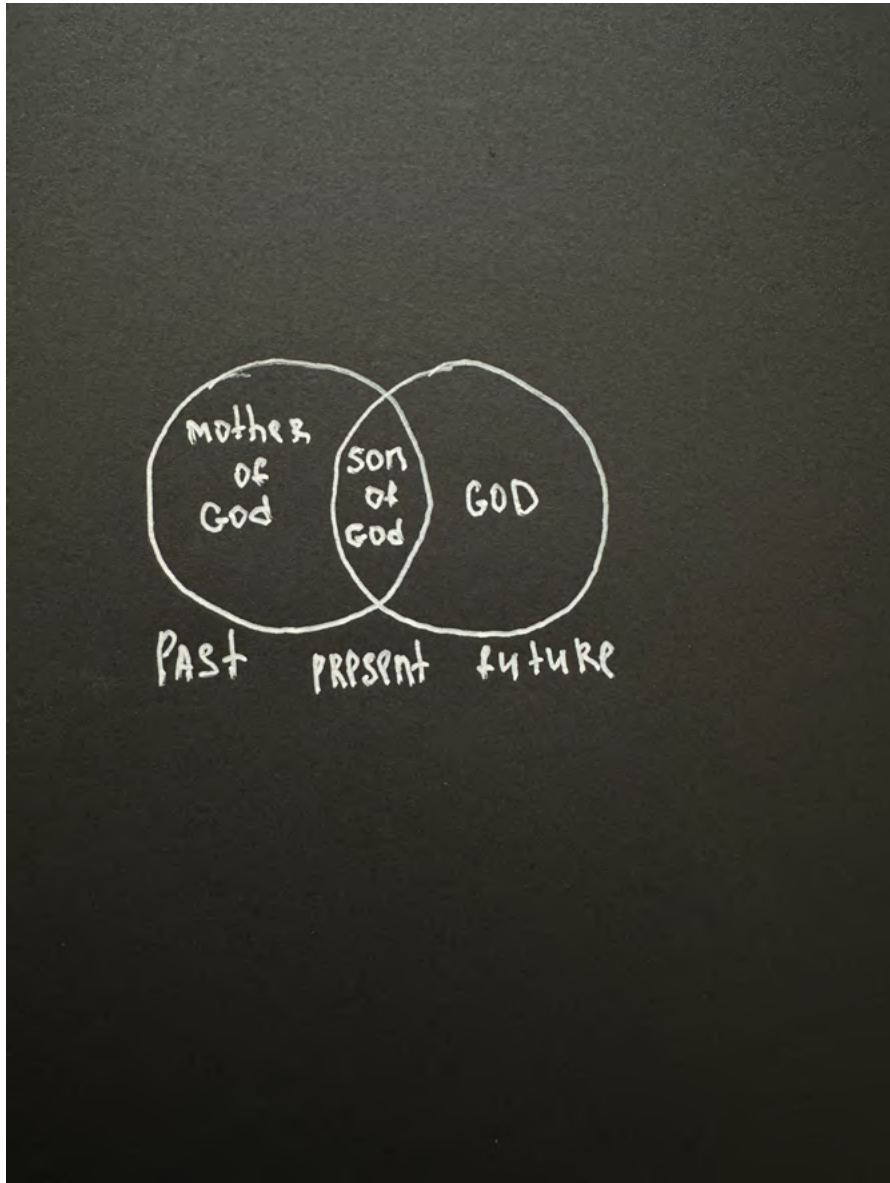 mother
of
God
son
of
God
GOD
PAst
PRESENt
future